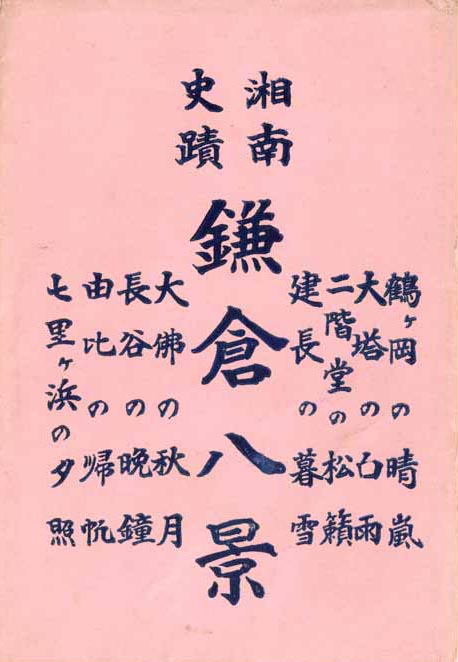 湘南
史蹟
鎌倉八景
鶴ヶ岡の晴嵐
大塔の白雨
二階堂の松籟
建長の暮雪
大佛の秋月
長谷の晩鐘
由比の帰帆
七里ヶ浜の夕照